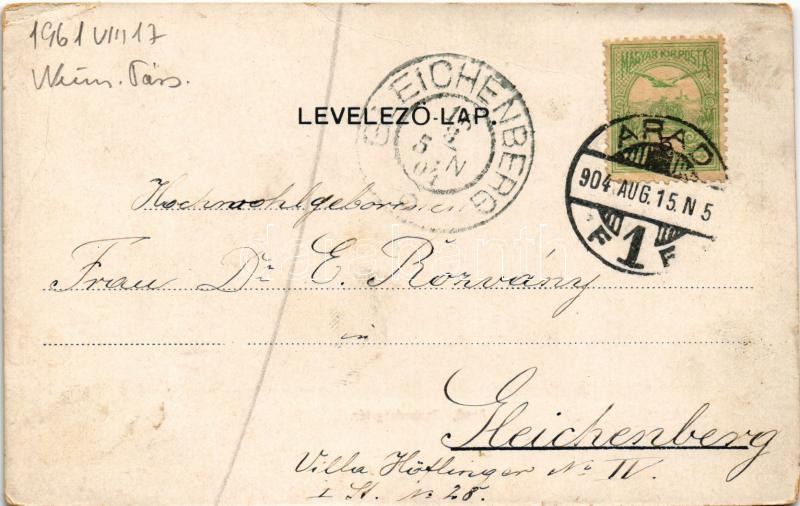 1961 VIII 17
Num. Társ.
MAGYAR KIR. POSTA
GLEICHENBERG
LEVELEZŐ-LAP.
ARAD
904. AUG. 15. N 5
1
Hochwohlgeborenen
Frau Dr E. Rozvány
in
Gleichenberg
Villa Höflinger No IV.
I St. No 28.